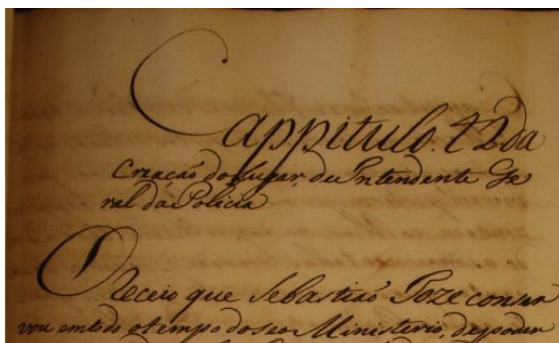 Cappitulo. 42 da
Criação do Lugar, de Intendente Ge
ral da Policia
O Receio que Sebastiaõ Joze conser
vou em todo o tempo do seo Ministerio, de poder